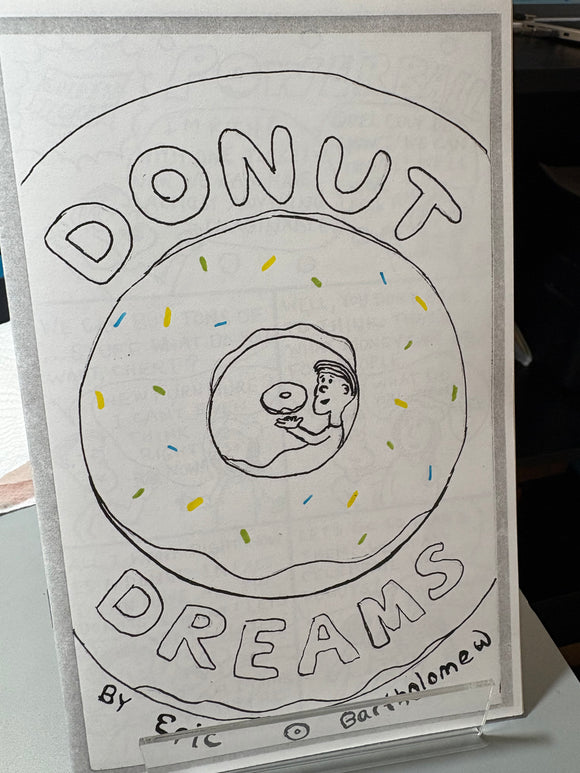 DONUT
DREAMS
BY Eric Bartholomew